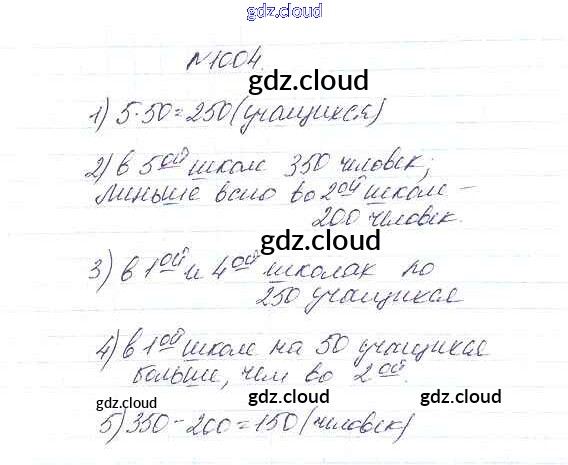 gdz.cloud
№1004.
gdz.cloud
1) 5·50=250 (учащихся)
2) в 5ой школе 350 человек;
Меньше всего во 2ой школе –
200 человек.
gdz.cloud
3) в 1ой и 4ой школах по
250 учащихся
4) в 1ой школе на 50 учащихся
больше, чем во 2ой.
gdz.cloud gdz.cloud
5) 350-200=150 (человек)